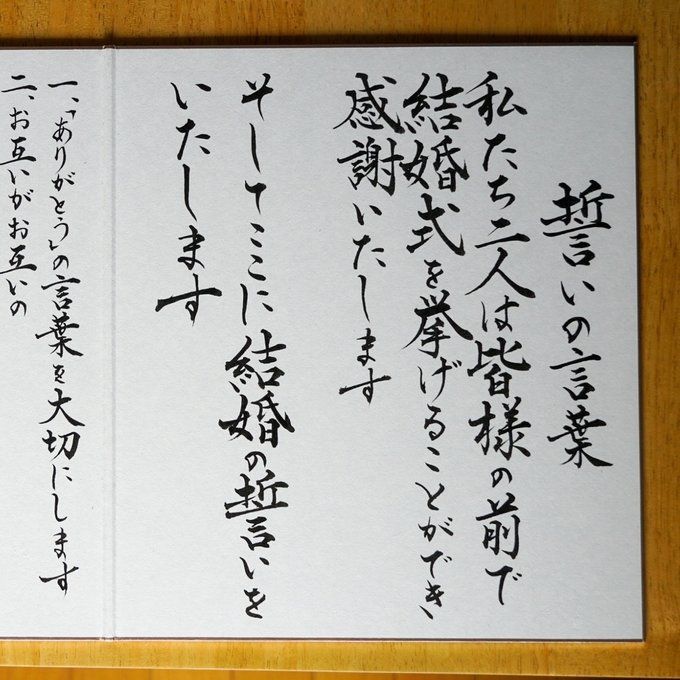 誓いの言葉
私たち二人は皆様の前で
結婚式を挙げることができ、
感謝いたします
そしてここに結婚の誓いを
いたします
一、「ありがとう」の言葉を大切にします
二、お互いがお互いの